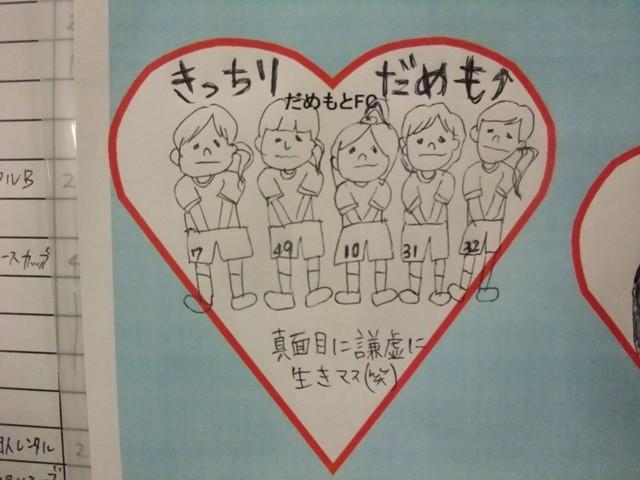 きっちり だめも↗
だめもとFC
7 49 10 31 32
真面目に謙虚に
生きマス(笑)
ルB
ースカップ
人レンタル